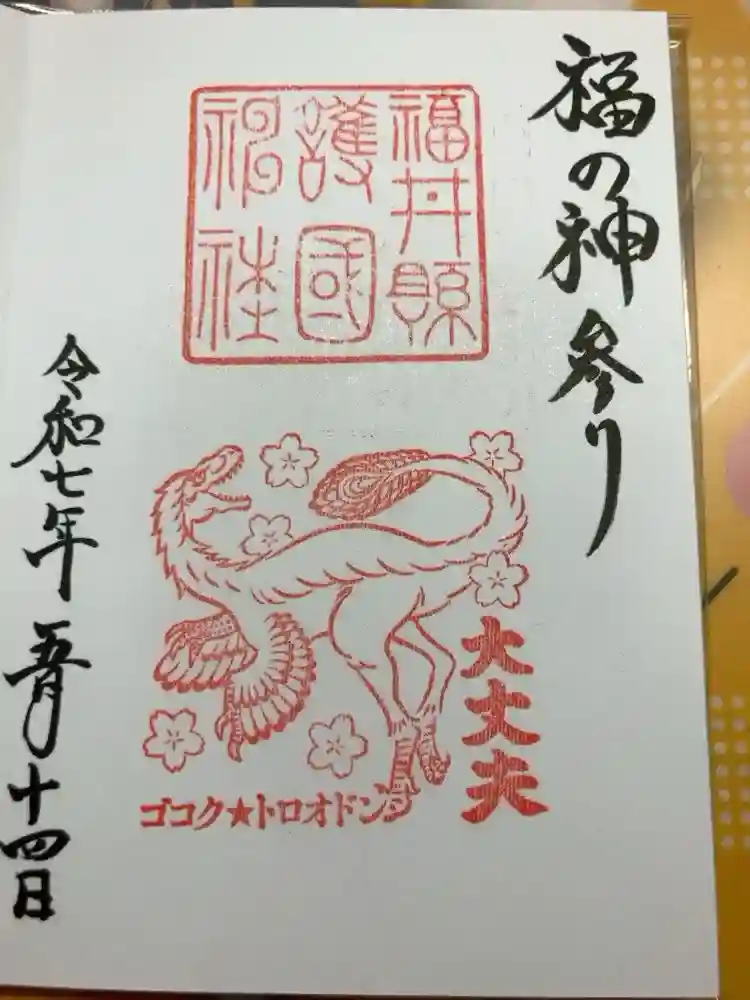 福の神参り
福井縣
護國
神社
大丈夫
ゴコク★トロオドン
令和七年五月十四日